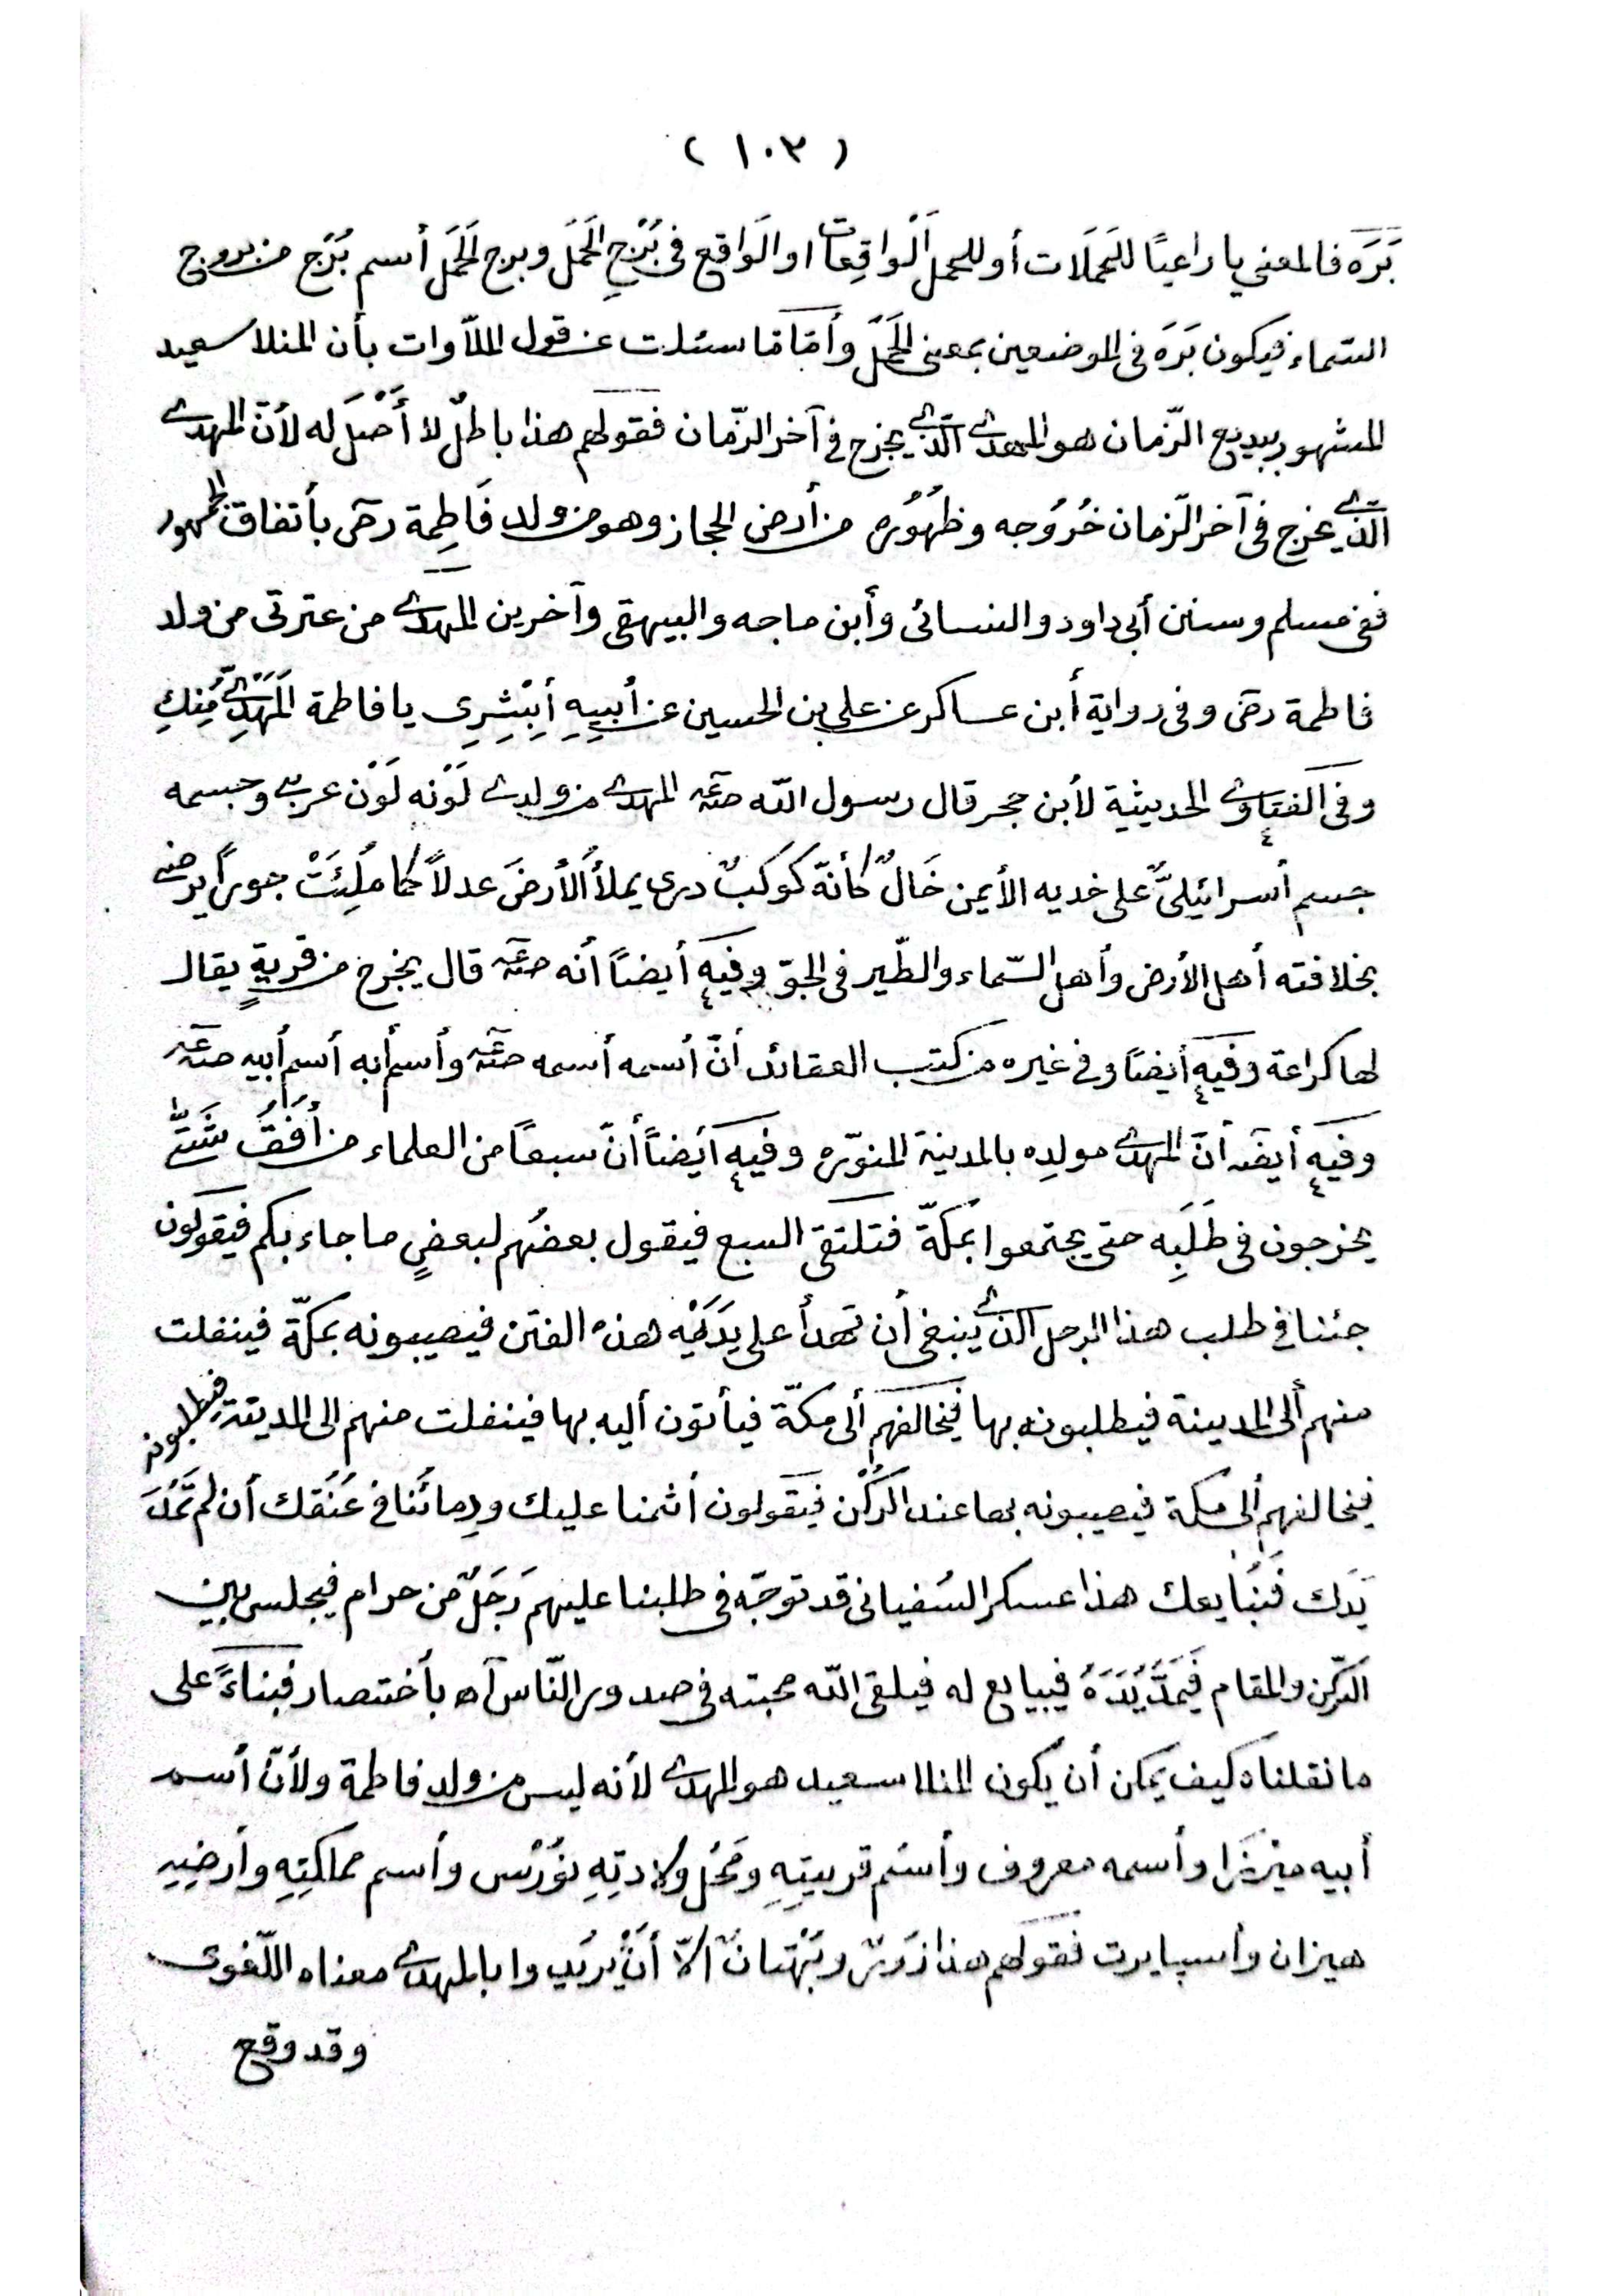 (١٠٣)
بَرَه فالمعنى يا راعيًا للحَمَلَات أو للحمل الواقِعات او الوَاقع فى بُرْجِ الحَمَل وبرج الحَمَل أسم بُرْج من بروج
السّماء فيكون بَرَه فى الموضعين بمعنى الحَمَل وأمّا ما سئلت عن قول الملاّوات بأن المنلا سعيد
المشهور ببديع الزّمان هو المهدى الّذى يخرج فى آخر الزّمان فقولهم هذا باطلٌ لا أَصْلَ له لأنّ المهدى
الّذى يخرج فى آخر الزّمان خُرُوجه وظهُوُره من أرض الحجاز وهو من ولد فَاطِمة رضى بأتفاق الجمهور
ففى مسلم وسنن أبى داود والنسائى وأبن ماجه والبيهقى وآخرين المهدى من عترتى من ولد
فاطمة رضى وفى رواية أبن عساكر عن على بن الحسين عن أبيِهِ أَبْشِرِى يا فاطمة المَهْدِىُّ مِنكِ
وفى الفتاوى الحديثية لأبن حجر قال رسول الله صتعم المهدى من ولدى لَوْنه لَوْن عربى وجسمه
جسم أسرائيلىٌّ على خديه الأيمن خَالٌ كأنّه كَوكَبٌ درى يملأُ الأرضَ عدلاً كما مُلِئَتْ جوراً يرضى
بخلافته أهل الأرض وأهل السّماء والطّير فى الجوّ وفيه أيضاً أنه صتعم قال يخرج من قريةٍ يقال
لها كراعة وفيه أيضاً وفى غيره من كتب العقائد أنّ أسمه أسمه صتعم وأسم أبه أسم أبيه صتعم
وفيه أيضَا أنّ المهدى مولده بالمدينة المنوّره وفيه أيضاً أنّ سبعاً من العلماء من أُفُق شَتّى
يخرجون فى طَلَبِه حتى يجتمعوا بمكّة فتلتقى السبع فيقول بعضُهم لبعضٍ ما جاء بكم فيقولون
جئنا فى طلب هذا الرجل الذى ينبغى أن تهدأ على يَدَيْه هذه الفتن فيصيبونه بمكّة فينفلت
منهم ألى المدينة فيطلبونه بها فيخالفهم ألى مكّة فيأتون أليه بها فينفلت منهم الى المدينة فيطلبونه
فيخالفهم ألى مكة فيصيبونه بها عند الركْن فيقولون أثمنا عليك ودِمائُنا فى عُنُقك أن لم تَمُدَ
يَدَك فَنُبَايعك هذا عسكر السُفيانى قد توجّه فى طلبنا عليهم رَجُلٌ من حرام فيجلس بين
الرّكن والمقام فَيَمُدَّ يَدَهُ فيبايع له فيلقى الله محبته فى صدور النّاس آه بأختصار فبناءً على
ما نقلناه كيف يمكن أن يكون المنلا سعيد هو المهدى لأنه ليس من ولد فاطمة ولأنّ أسم
أبيه ميرزَا وأسمه معروف وأسُم قريتِهِ ومَحَل ولادتِهِ نوُرْس وأسم مملكتِهِ وأرضِهِ
هيزان وأسبايرت فقولهم هذا زورٌ وبُهْتانٌ الاّ أنْ يريدوا بالمهدى معناه اللّغوى
وقد وقع